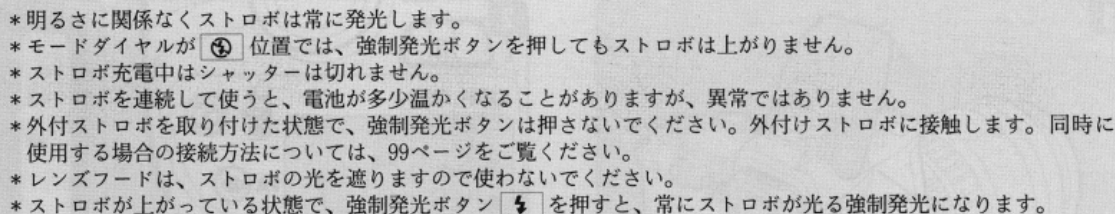 *明るさに関係なくストロボは常に発光します。
*モードダイヤルが 位置では、強制発光ボタンを押してもストロボは上がりません。
*ストロボ充電中はシャッターは切れません。
*ストロボを連続して使うと、電池が多少温かくなることがありますが、異常ではありません。
*外付ストロボを取り付けた状態で、強制発光ボタンは押さないでください。外付けストロボに接触します。同時に
使用する場合の接続方法については、99ページをご覧ください。
*レンズフードは、ストロボの光を遮りますので使わないでください。
*ストロボが上がっている状態で、強制発光ボタン を押すと、常にストロボが光る強制発光になります。